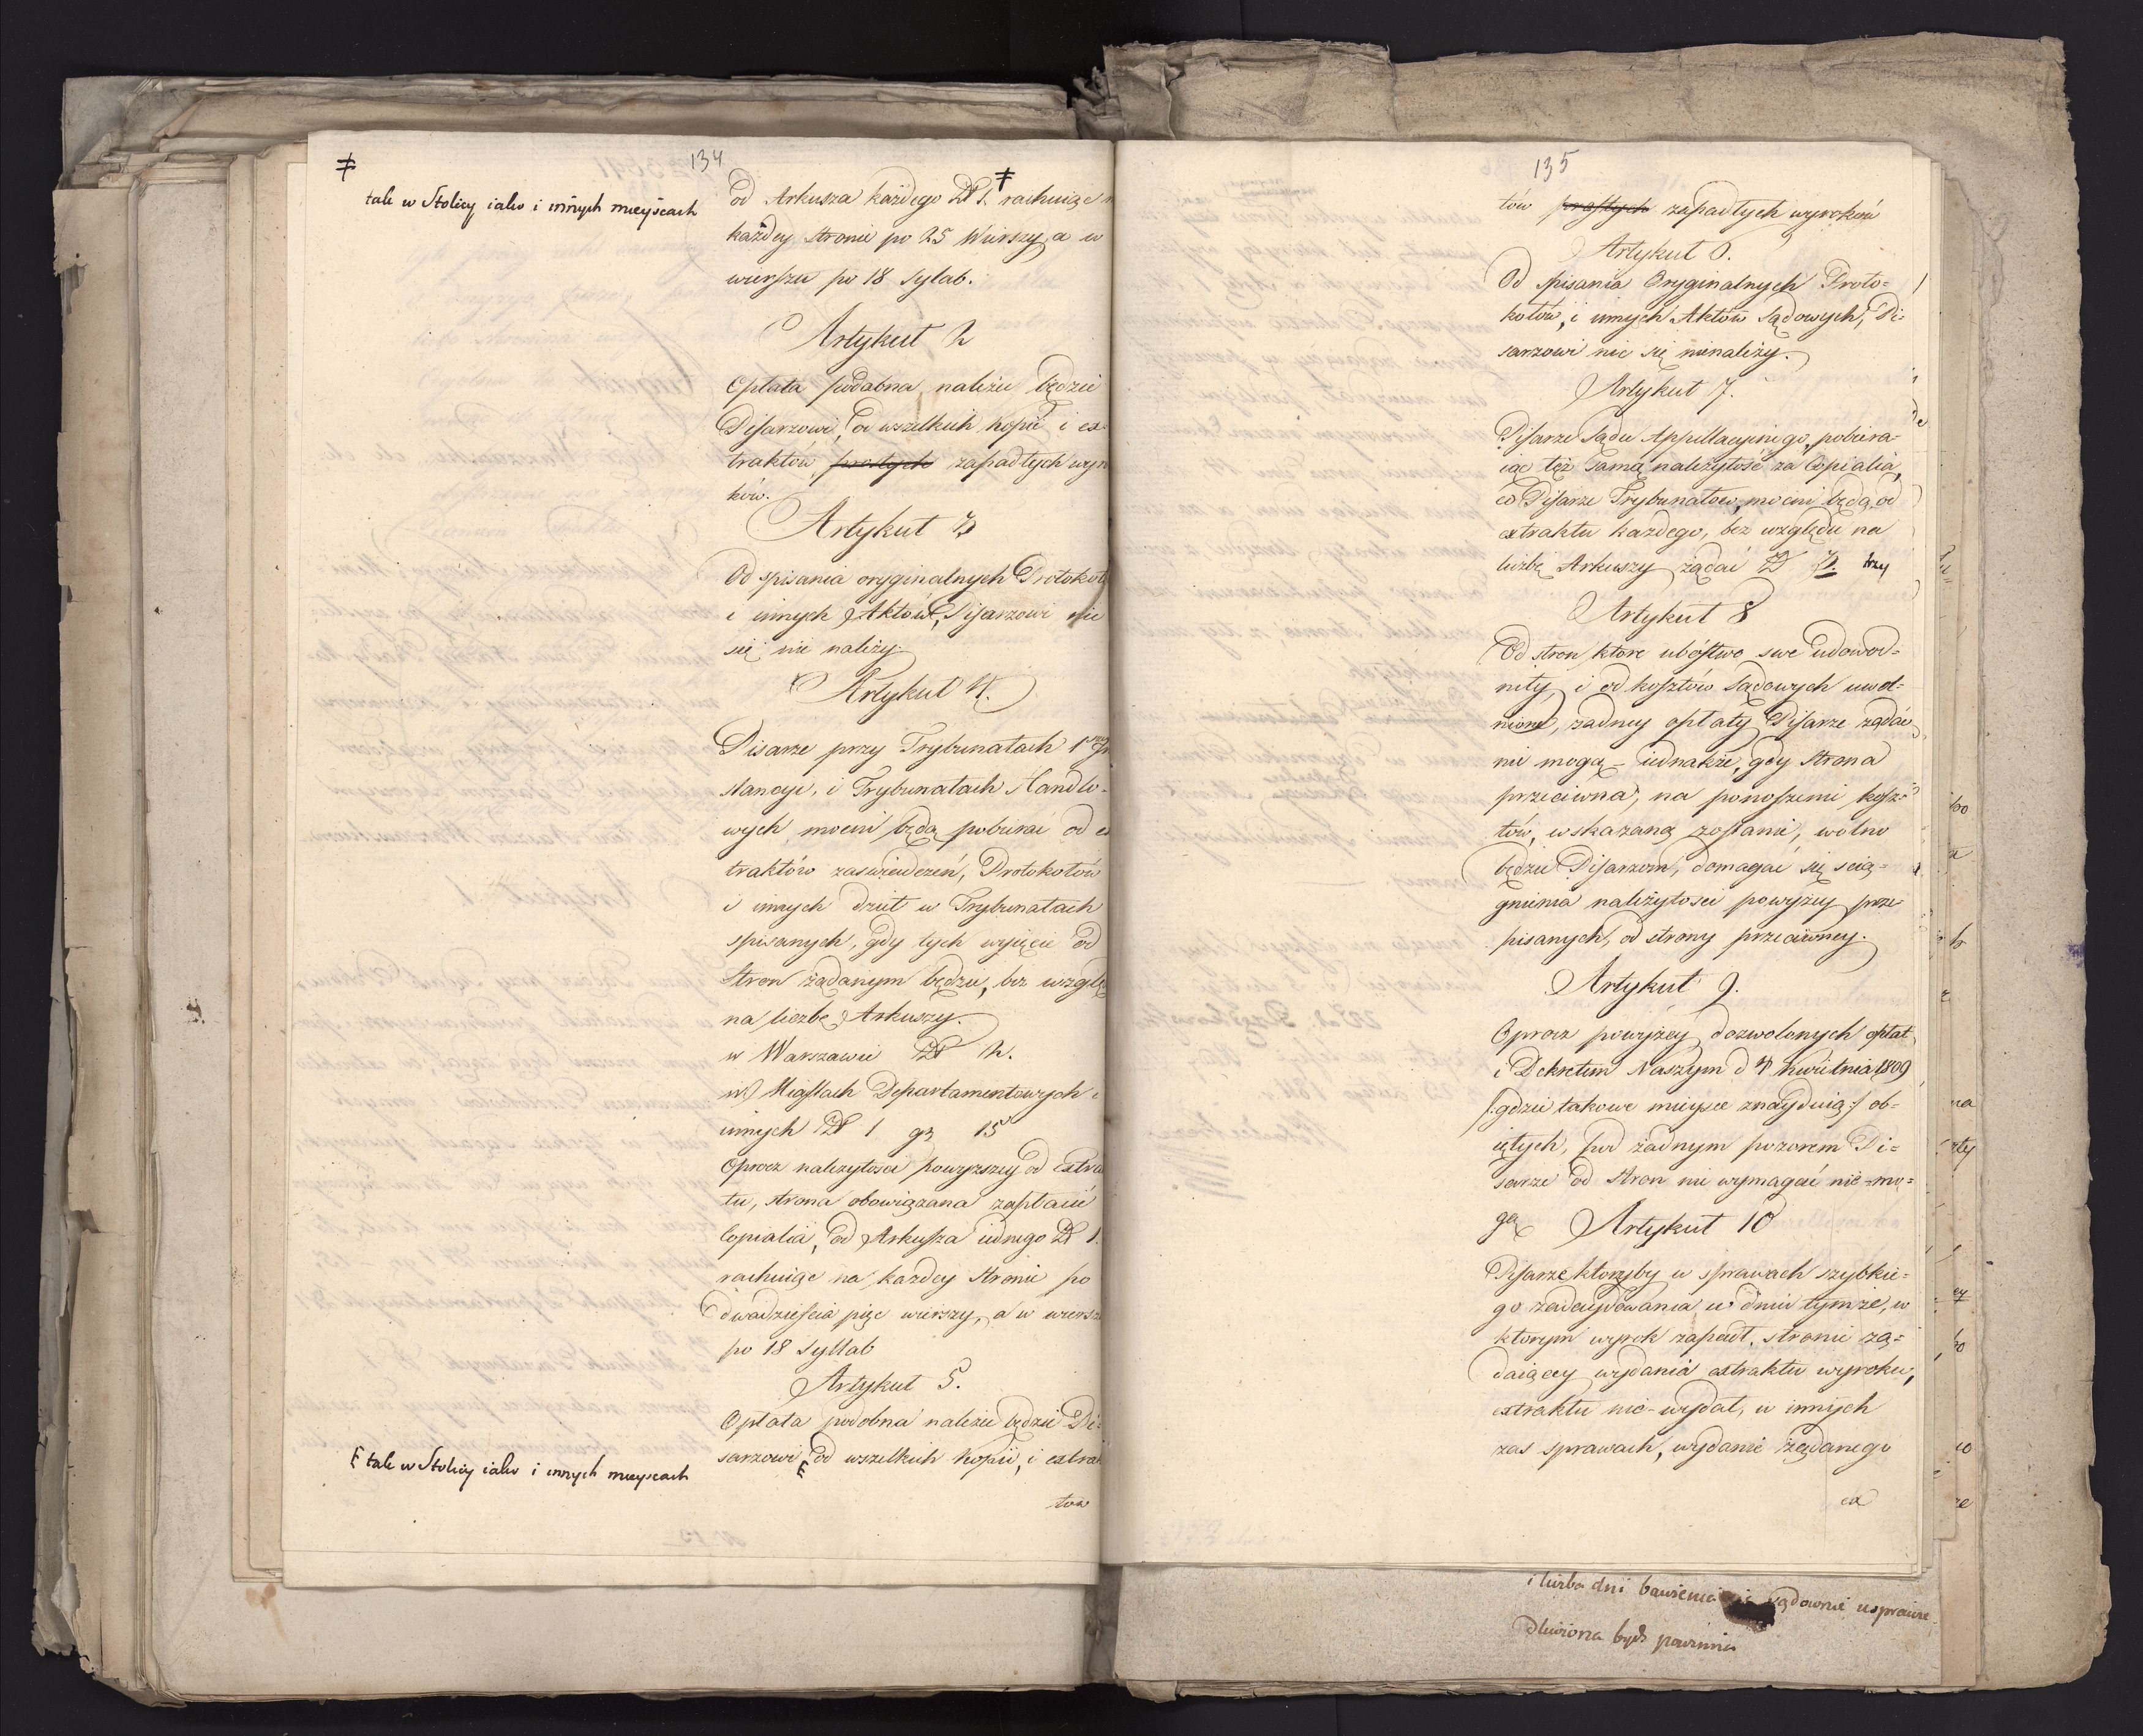 134
‡
tak w Stolicy iako i innych mieyscach
od Arkusza każdego Zł 1. ‡ rachuiąc n
każdey stronie po 25 Wierszy, a w
wierszu po 18 Sylab.
Artykuł 2
Opłata podobna, należeć będzie
Pisarzowi, od wszelkich kopii i ex-
traktów prostych zapadłych wyro
ków.
Artykuł 3
Od spisania oryginalnych Protokołó
i innych Aktów, Pisarzowi nic
się nie należy.
Artykuł 4.
Pisarze przy Trybunałach 1szey In
stancyi, i Trybunałach Handlo-
wych mocni będą pobierać od ex
traktów zaświadczeń, Protokołów
i innych dzieł w Trybunałach
spisanych, gdy tych wyięcie od
Stron żądanym będzie, bez wzglę
na liczbę Arkuszy.
w Warszawie Zł 2.
w Miastach Departamentowych i
innych Zł 1 gr 15
Oprocz należytości powyższey od Extrak
tu, strona obowiązana zapłacić
Copialia, od Arkusza iednego Zł 1.
rachuiąc na każdey stronie po
dwadzieścia pięć wierszy, a w wiersz
po 18 Syllab
Artykuł 5.
Opłata podobna należeć będzie Pi-
sarzowi od wszelkich kopii, i extrak
tów
tak w Stolicy iako i innych mieyscach
135
tów prostych zapadłych wyroków
Artykuł 6.
Od spisania Oryginalnych Proto-
kołów, i innych Aktów Sądowych, Pi-
sarzowi nic się nienależy.
Artykuł 7.
Pisarze Sądu Appellacyinego, pobiera-
iąc też samą należytość za Copialia,
co Pisarze Trybunałów, mocni będą od
extraktu każdego, bez względu na
liczbę Arkuszy żądać Zł 3. trzy
Artykuł 8
Od stron ktore ubóstwo swe udowod-
niły, i od kosztów Sądowych uwol-
nione, żadney opłaty Pisarze żądać
nie mogą – iednakże, gdy Strona
przeciwna, na ponoszenie kosz-
tów, wskazaną zostanie, wolno
będzie Pisarzom, domagać się ścią-
gnienia należytości powyżey prze-
pisanych, od strony przeciwney.
Artykuł 9.
Oprocz powyżey dozwolonych opłat,
i Dekretem Naszym d 4 Kwietnia 1809
/:gdzie takowe mieysce znayduią:/ ob-
iętych, pod żadnym pozorem Pi-
sarze od stron nic wymagać nie-mo-
gą
Artykuł 10
Pisarze ktorzyby w sprawach szybkie-
go zadecydowania w dniu tymże, w
ktorym wyrok zapadł, stronie żą-
daiącey wydania extraktu wyroku,
extraktu nie-wydał, w innych
zas sprawach, wydanie żądanego
ex
i liczba dni bawienia sądownie usprawie-
dliwiona bydź powinna